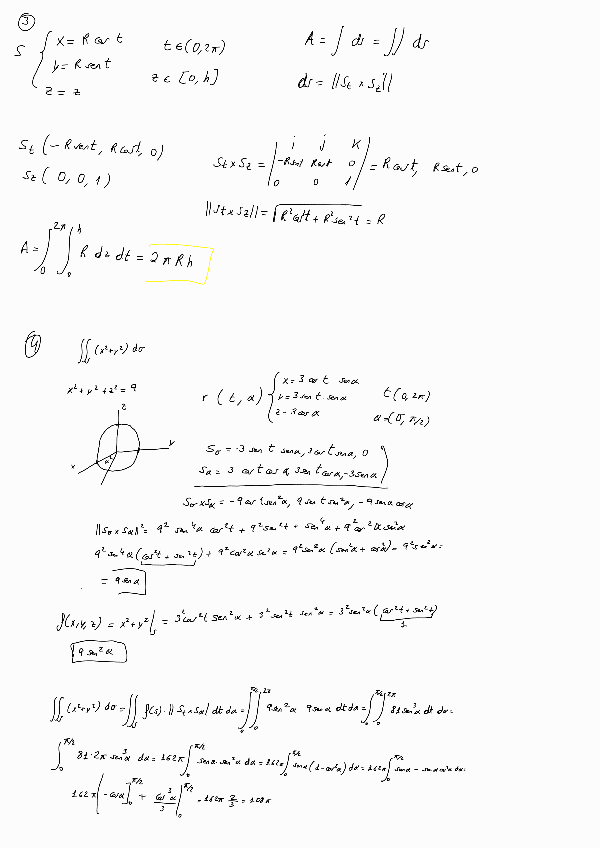 3
S { x = R cos t   t ∈ (0, 2π)   A = ∫ ds = ∬ ds
y = R sen t   z ∈ [0, h]   ds = ||St × Sz||
z = z
St (-R sen t, R cos t, 0)
Sz ( 0, 0, 1)
St × Sz = | i j k ; -R sen t R cos t 0 ; 0 0 1 | = R cos t, R sen t, 0
||St × Sz|| = √(R² cos² t + R² sen² t) = R
A = ∫₀^2π ∫₀^h R dz dt = 2πRh
4   ∬ (x²+y²) dσ
x² + y² + z² = 9
z
y
x
α
r (t, α) { x = 3 cos t senα   t (0, 2π)
y = 3 sen t · senα
z = 3 cosα   α = (0, π/2)
Sσ = -3 sen t senα, 3 cos t senα, 0
Sα = 3 cos t cosα, 3 sen t cosα, -3 senα
Sσ × Sα = -9 cos t sen²α, 9 sen t sen²α, -9 senα cosα
||Sσ × Sα||² = 9² sen⁴α cos² t + 9² sen² t + sen⁴α + 9² cos²α sen²α
9² sen⁴α (cos² t + sen² t) + 9² cos²α sen²α = 9² sen²α (sen²α + cos²α) = 9² sen²α =
= 9 senα
f(x, y, z) = x² + y²|s = 3² cos² t sen²α + 3² sen² t sen²α = 3² sen²α (cos² t + sen² t)
1
9 sen²α
∬ (x²+y²) dσ = ∬ f(s) · ||St × Sα|| dt dα = ∫₀^π/2 ∫₀^2π 9 sen²α 9 senα dt dα = ∫₀^π/2 ∫₀^2π 81 sen³α dt dα =
∫₀^π/2 81 · 2π sen³α dα = 162π ∫₀^π/2 senα · sen²α dα = 162π ∫₀^π/2 senα (1 - cos²α) dα = 162π ∫₀^π/2 senα - senα cos²α dα =
162π [ -cosα ]₀^π/2 + cos³α/3 |₀^π/2 = 162π 2/3 = 108π